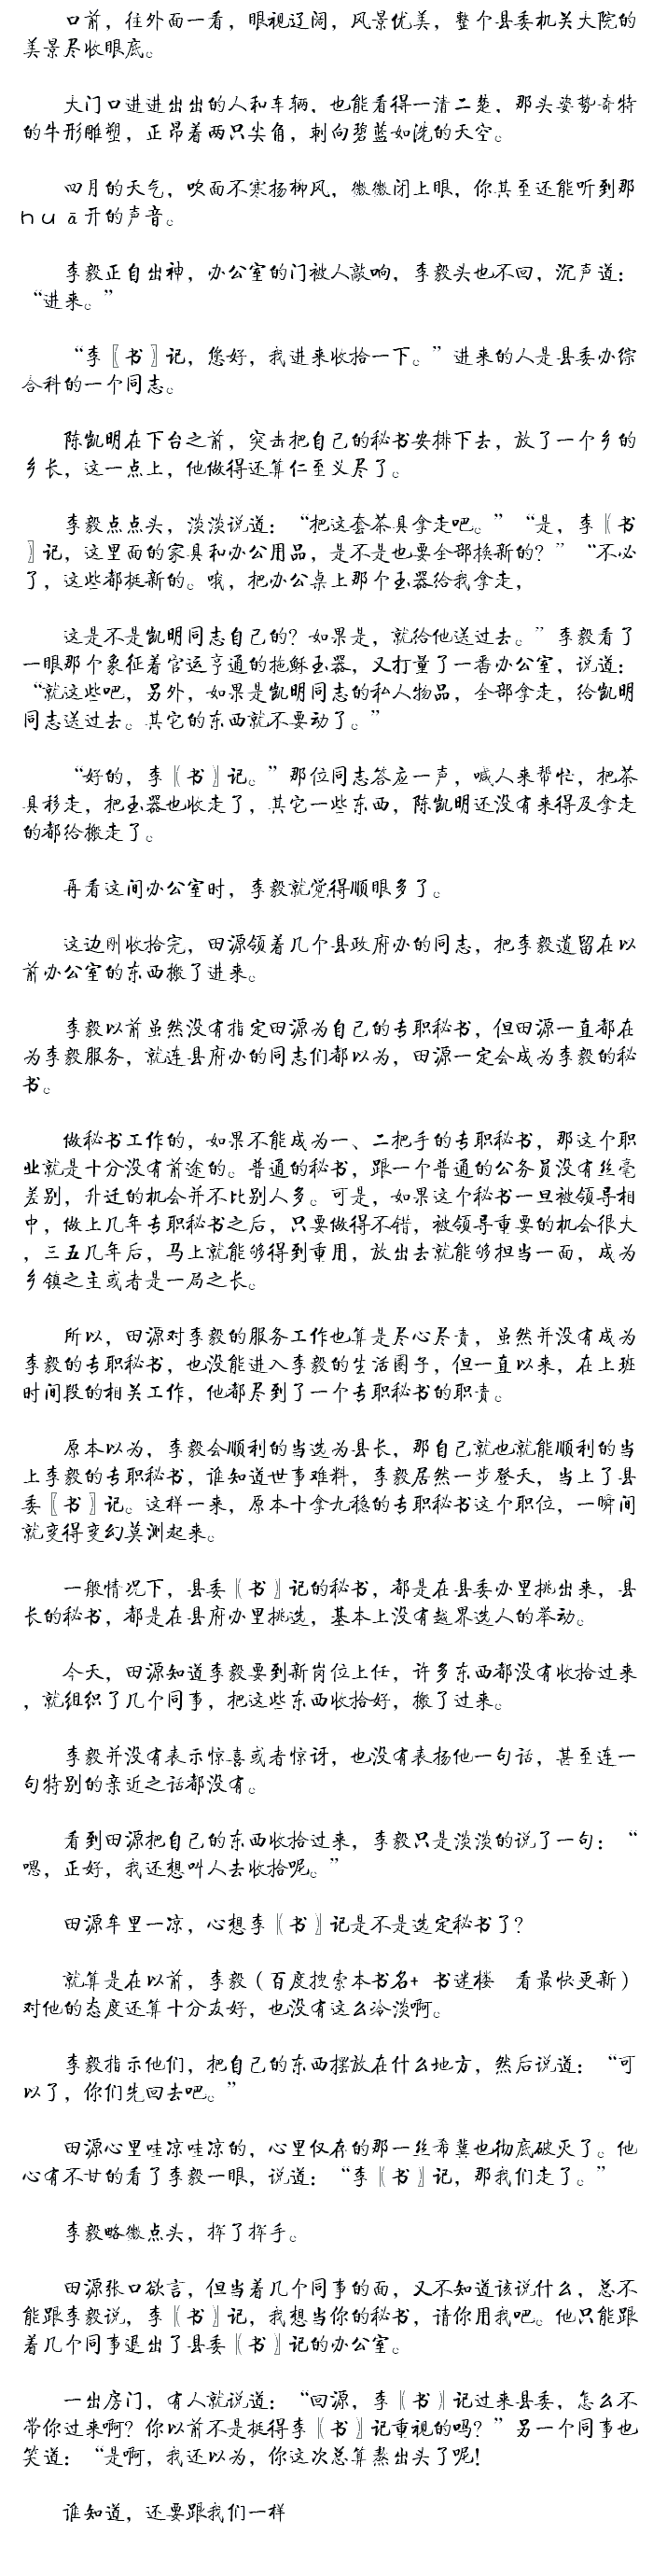 口前，往外面一看，眼视辽阔，风景优美，整个县委机关大院的
美景尽收眼底。
大门口进进出出的人和车辆，也能看得一清二楚，那头姿势奇特
的牛形雕塑，正昂着两只尖角，刺向碧蓝如洗的天空。
四月的天气，吹面不寒杨柳风，微微闭上眼，你甚至还能听到那
ｈｕā开的声音。
李毅正自出神，办公室的门被人敲响，李毅头也不回，沉声道：
“进来。”
“李〖书〗记，您好，我进来收拾一下。”进来的人是县委办综
合科的一个同志。
陈凯明在下台之前，突击把自己的秘书安排下去，放了一个乡的
乡长，这一点上，他做得还算仁至义尽了。
李毅点点头，淡淡说道：“把这套茶具拿走吧。”“是，李〖书
〗记，这里面的家具和办公用品，是不是也要全部换新的？”“不必
了，这些都挺新的。哦，把办公桌上那个玉器给我拿走，
这是不是凯明同志自己的？如果是，就给他送过去。”李毅看了
一眼那个象征着官运亨通的拖稣玉器，又打量了一番办公室，说道：
“就这些吧，另外，如果是凯明同志的私人物品，全部拿走，给凯明
同志送过去。其它的东西就不要动了。”
“好的，李〖书〗记。”那位同志答应一声，喊人来帮忙，把茶
具移走，把玉器也收走了，其它一些东西，陈凯明还没有来得及拿走
的都给搬走了。
再看这间办公室时，李毅就觉得顺眼多了。
这边刚收拾完，田源领着几个县政府办的同志，把李毅遗留在以
前办公室的东西搬了进来。
李毅以前虽然没有指定田源为自己的专职秘书，但田源一直都在
为李毅服务，就连县府办的同志们都以为，田源一定会成为李毅的秘
书。
做秘书工作的，如果不能成为一、二把手的专职秘书，那这个职
业就是十分没有前途的。普通的秘书，跟一个普通的公务员没有丝毫
差别，升迁的机会并不比别人多。可是，如果这个秘书一旦被领导相
中，做上几年专职秘书之后，只要做得不错，被领导重要的机会很大
，三五几年后，马上就能够得到重用，放出去就能够担当一面，成为
乡镇之主或者是一局之长。
所以，田源对李毅的服务工作也算是尽心尽责，虽然并没有成为
李毅的专职秘书，也没能进入李毅的生活圈子，但一直以来，在上班
时间段的相关工作，他都尽到了一个专职秘书的职责。
原本以为，李毅会顺利的当选为县长，那自己就也就能顺利的当
上李毅的专职秘书，谁知道世事难料，李毅居然一步登天，当上了县
委〖书〗记。这样一来，原本十拿九稳的专职秘书这个职位，一瞬间
就变得变幻莫测起来。
一般情况下，县委〖书〗记的秘书，都是在县委办里挑出来，县
长的秘书，都是在县府办里挑选，基本上没有越界选人的举动。
今天，田源知道李毅要到新岗位上任，许多东西都没有收拾过来
，就组织了几个同事，把这些东西收拾好，搬了过来。
李毅并没有表示惊喜或者惊讶，也没有表扬他一句话，甚至连一
句特别的亲近之话都没有。
看到田源把自己的东西收拾过来，李毅只是淡淡的说了一句：“
嗯，正好，我还想叫人去收拾呢。”
田源牟里一凉，心想李〖书〗记是不是选定秘书了？
就算是在以前，李毅（百度搜索本书名+ 书迷楼 看最快更新）
对他的态度还算十分友好，也没有这么冷淡啊。
李毅指示他们，把自己的东西摆放在什么地方，然后说道：“可
以了，你们先回去吧。”
田源心里哇凉哇凉的，心里仅存的那一丝希冀也彻底破灭了。他
心有不甘的看了李毅一眼，说道：“李〖书〗记，那我们走了。”
李毅略微点头，挥了挥手。
田源张口欲言，但当着几个同事的面，又不知道该说什么，总不
能跟李毅说，李〖书〗记，我想当你的秘书，请你用我吧。他只能跟
着几个同事退出了县委〖书〗记的办公室。
一出房门，有人就说道：“田源，李〖书〗记过来县委，怎么不
带你过来啊？你以前不是挺得李〖书〗记重视的吗？”另一个同事也
笑道：“是啊，我还以为，你这次总算熬出头了呢！
谁知道，还要跟我们一样